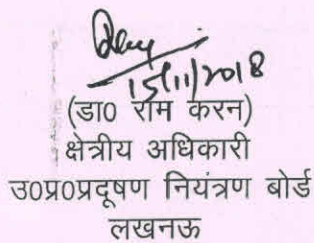 15/11/2018
(डा0 राम करन)
क्षेत्रीय अधिकारी
उ0प्र0प्रदूषण नियंत्रण बोर्ड
लखनऊ